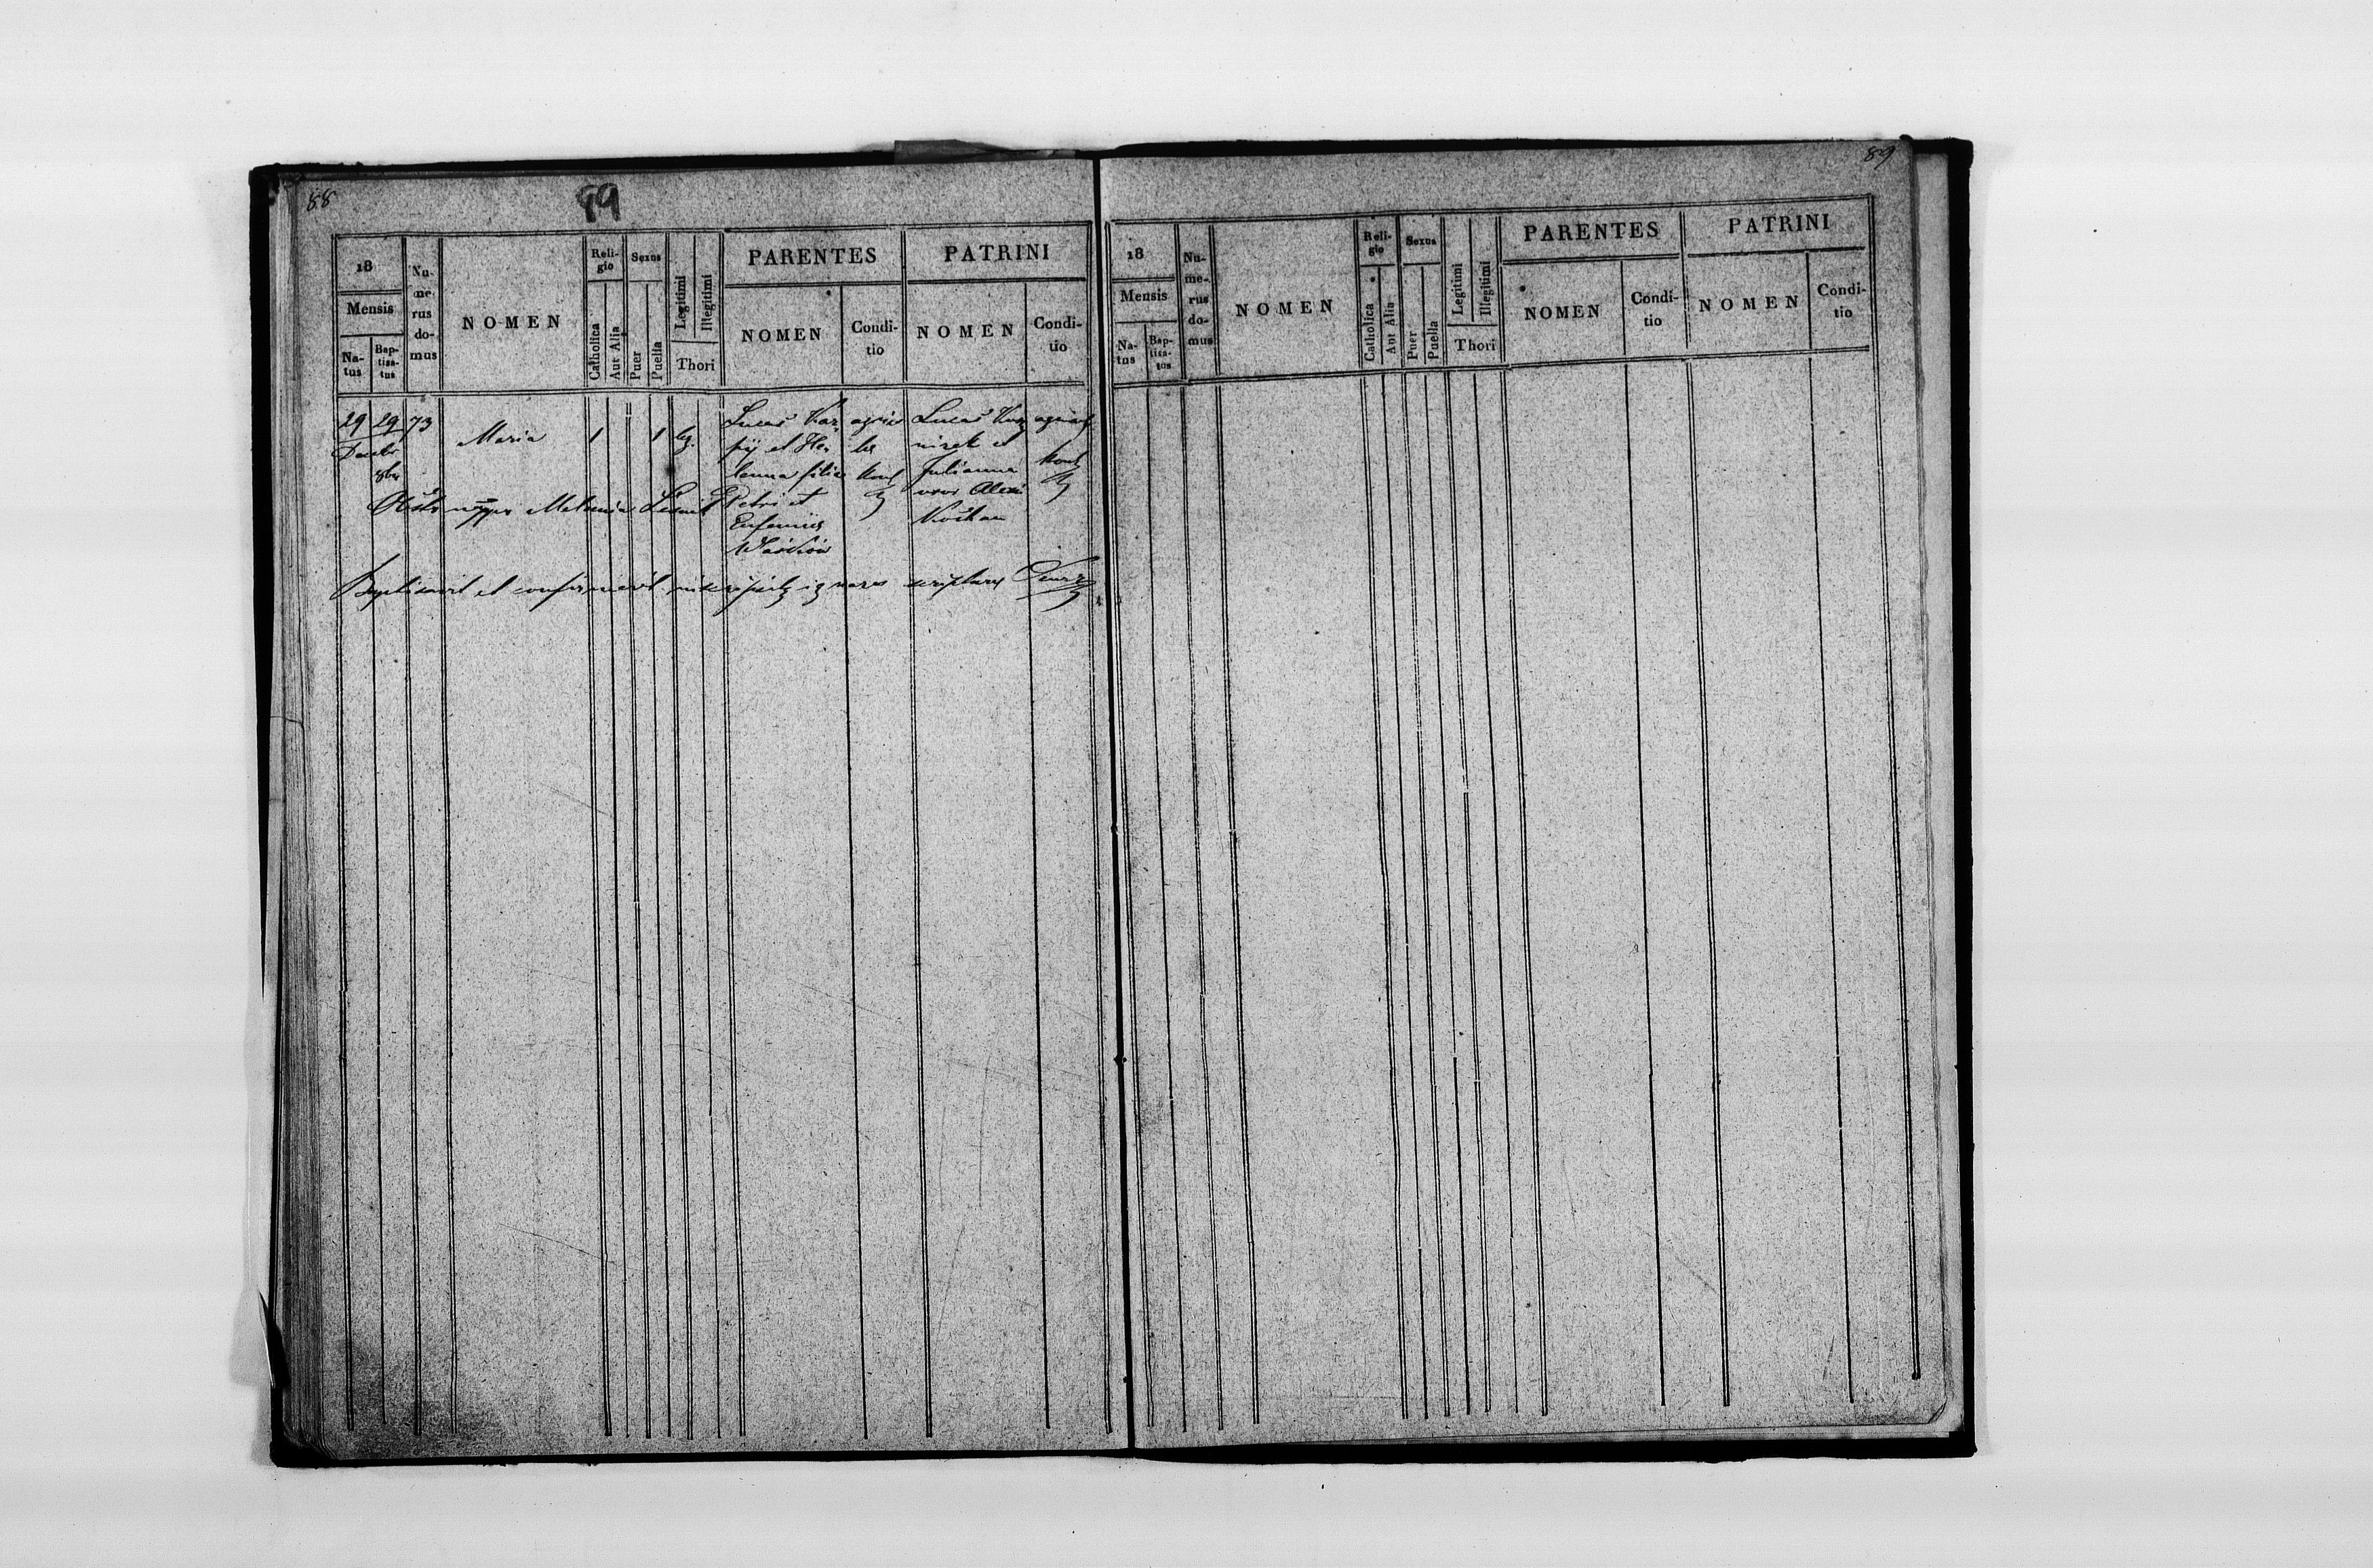 88
89
18
Mensis
Na-
tus
Bap-
tisa-
tus
Nu-
me-
rus
do-
mus
NOMEN
Reli-
gio
Catholica
Aut Alia
Sexus
Puer
Puella
Legitimi
Illegitimi
Thori
PARENTES
NOMEN
Condi-
tio
PATRINI
NOMEN
Condi-
tio
29 29 73
Maria 1 1 lg.
Lucas Kar
pij et He
lenna filia
Petri et
Eufemiis
agrico
lae
Lucas
et
Julianna
uxor Alexi
Kochan
Obstetrix Melania
Baptisavit et confirmavit
89
18
Mensis
Na-
tus
Bap-
tisa-
tus
Nu-
me-
rus
do-
mus
NOMEN
Reli-
gio
Catholica
Aut Alia
Sexus
Puer
Puella
Legitimi
Illegitimi
Thori
PARENTES
NOMEN
Condi-
tio
PATRINI
NOMEN
Condi-
tio